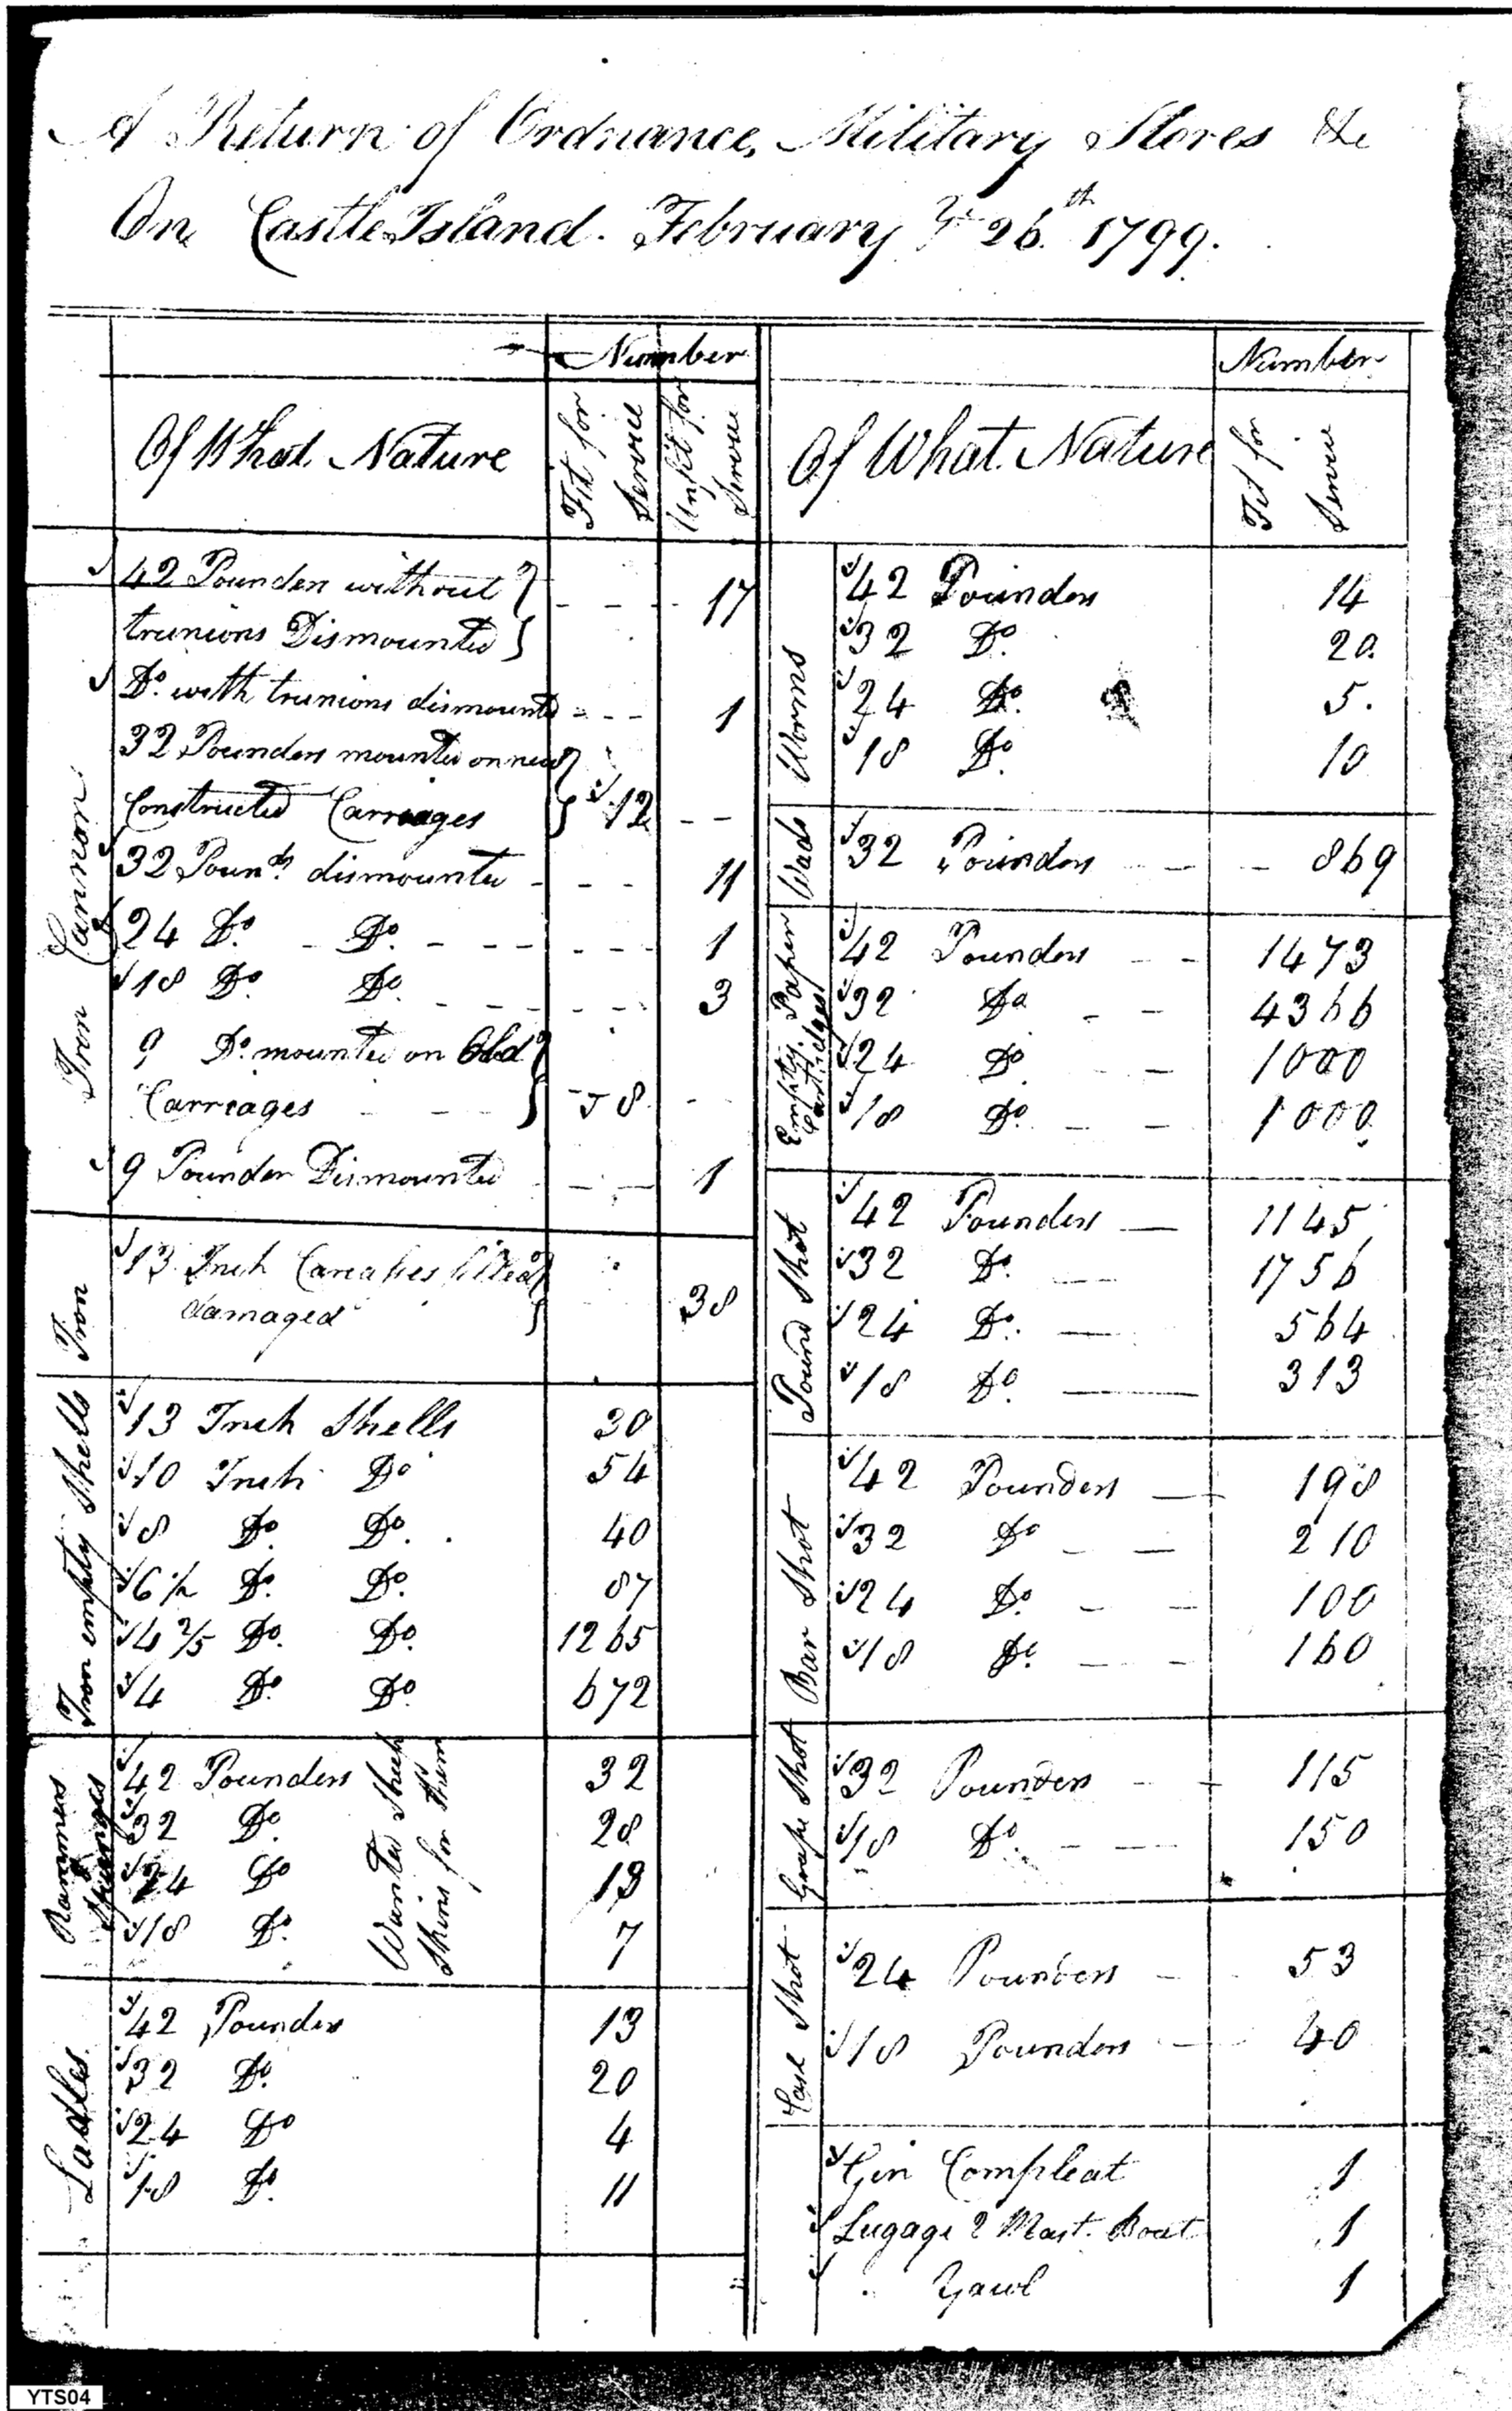 A Return of Ordnance, Military Stores &c
On Castle Island. February Ye 26th 1799.
Number
Of What Nature
Fit for Service
Unfit for Service
Iron Cannon
42 Pounders without } - - - 17
trunions Dismounted }
Do. with trunions dismounted - - - 1
32 Pounders mounted on new }
Constructed Carriages } 12 - -
32 Pounds. dismounted - - - - 11
24 Do. - Do. - - - - - - 1
18 Do. Do. - - - - - - 3
9 Do. mounted on Old }
Carriages - - } 8 - -
9 Pounder Dismounted - - - 1
Iron
13 Inch Carcases filled }
damaged } 38
Iron empty Shells
13 Inch Shells 30
10 Inch Do 54
8 Do. Do. 40
6 1/2 Do. Do. 87
4 2/5 Do. Do. 1265
4 Do. Do. 672
Rammers Spunges
42 Pounders 32
32 Do. 28
24 Do 13
18 Do. 7
Wanted Sheep
Skins for them
Ladles
42 Pounders 13
32 Do. 20
24 Do 4
18 Do. 11
Number
Of What Nature
Fit for Service
Worms
42 Pounders 14
32 Do. 20.
24 Do. 5.
18 Do. 10
Wads
32 Pounders - - - 869
Empty Paper Cartridges
42 Pounders - - 1473
32 Do - - 4366
24 Do - - 1000
18 Do. - - 1000
Pound Shot
42 Pounders — 1145
32 Do. — 1756
24 Do. — 564
18 Do. — 313
Bar Shot
42 Pounders — 198
32 Do - — 210
24 Do. - - 100
18 Do. - - 160
Grape Shot
32 Pounders - - 115
18 Do. - — 150
Case Shot
24 Pounders - - 53
18 Pounders — 40
Gin Compleat 1
Lugage 2 Mast. Boat 1
Yawl 1
YTS04